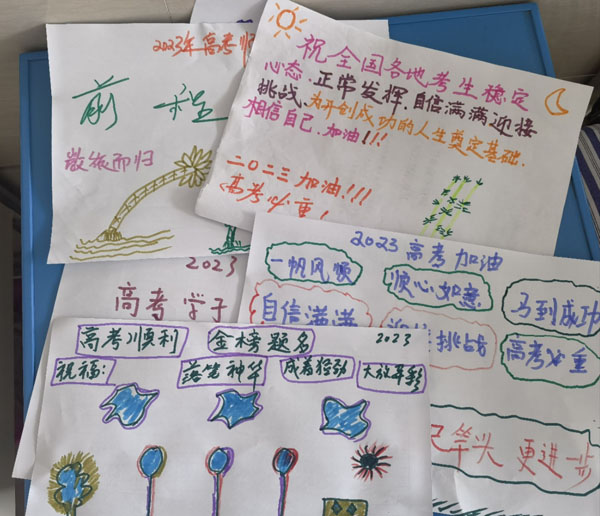 2023年高考
前程
满绩而归
祝全国各地考生稳定
心态.正常发挥.自信满满迎接
挑战.为开创成功的人生奠定基础.
相信自己.加油!!!
二〇二三加油!!!
高考必重!
2023
高考学子
2023高考加油
一帆风顺
顺心如意
马到成功
自信满满
挑战
高考必重
竿头 更进一步
高考顺利
金榜题名
2023
祝福:
落笔神华
成着稳动
大放异彩